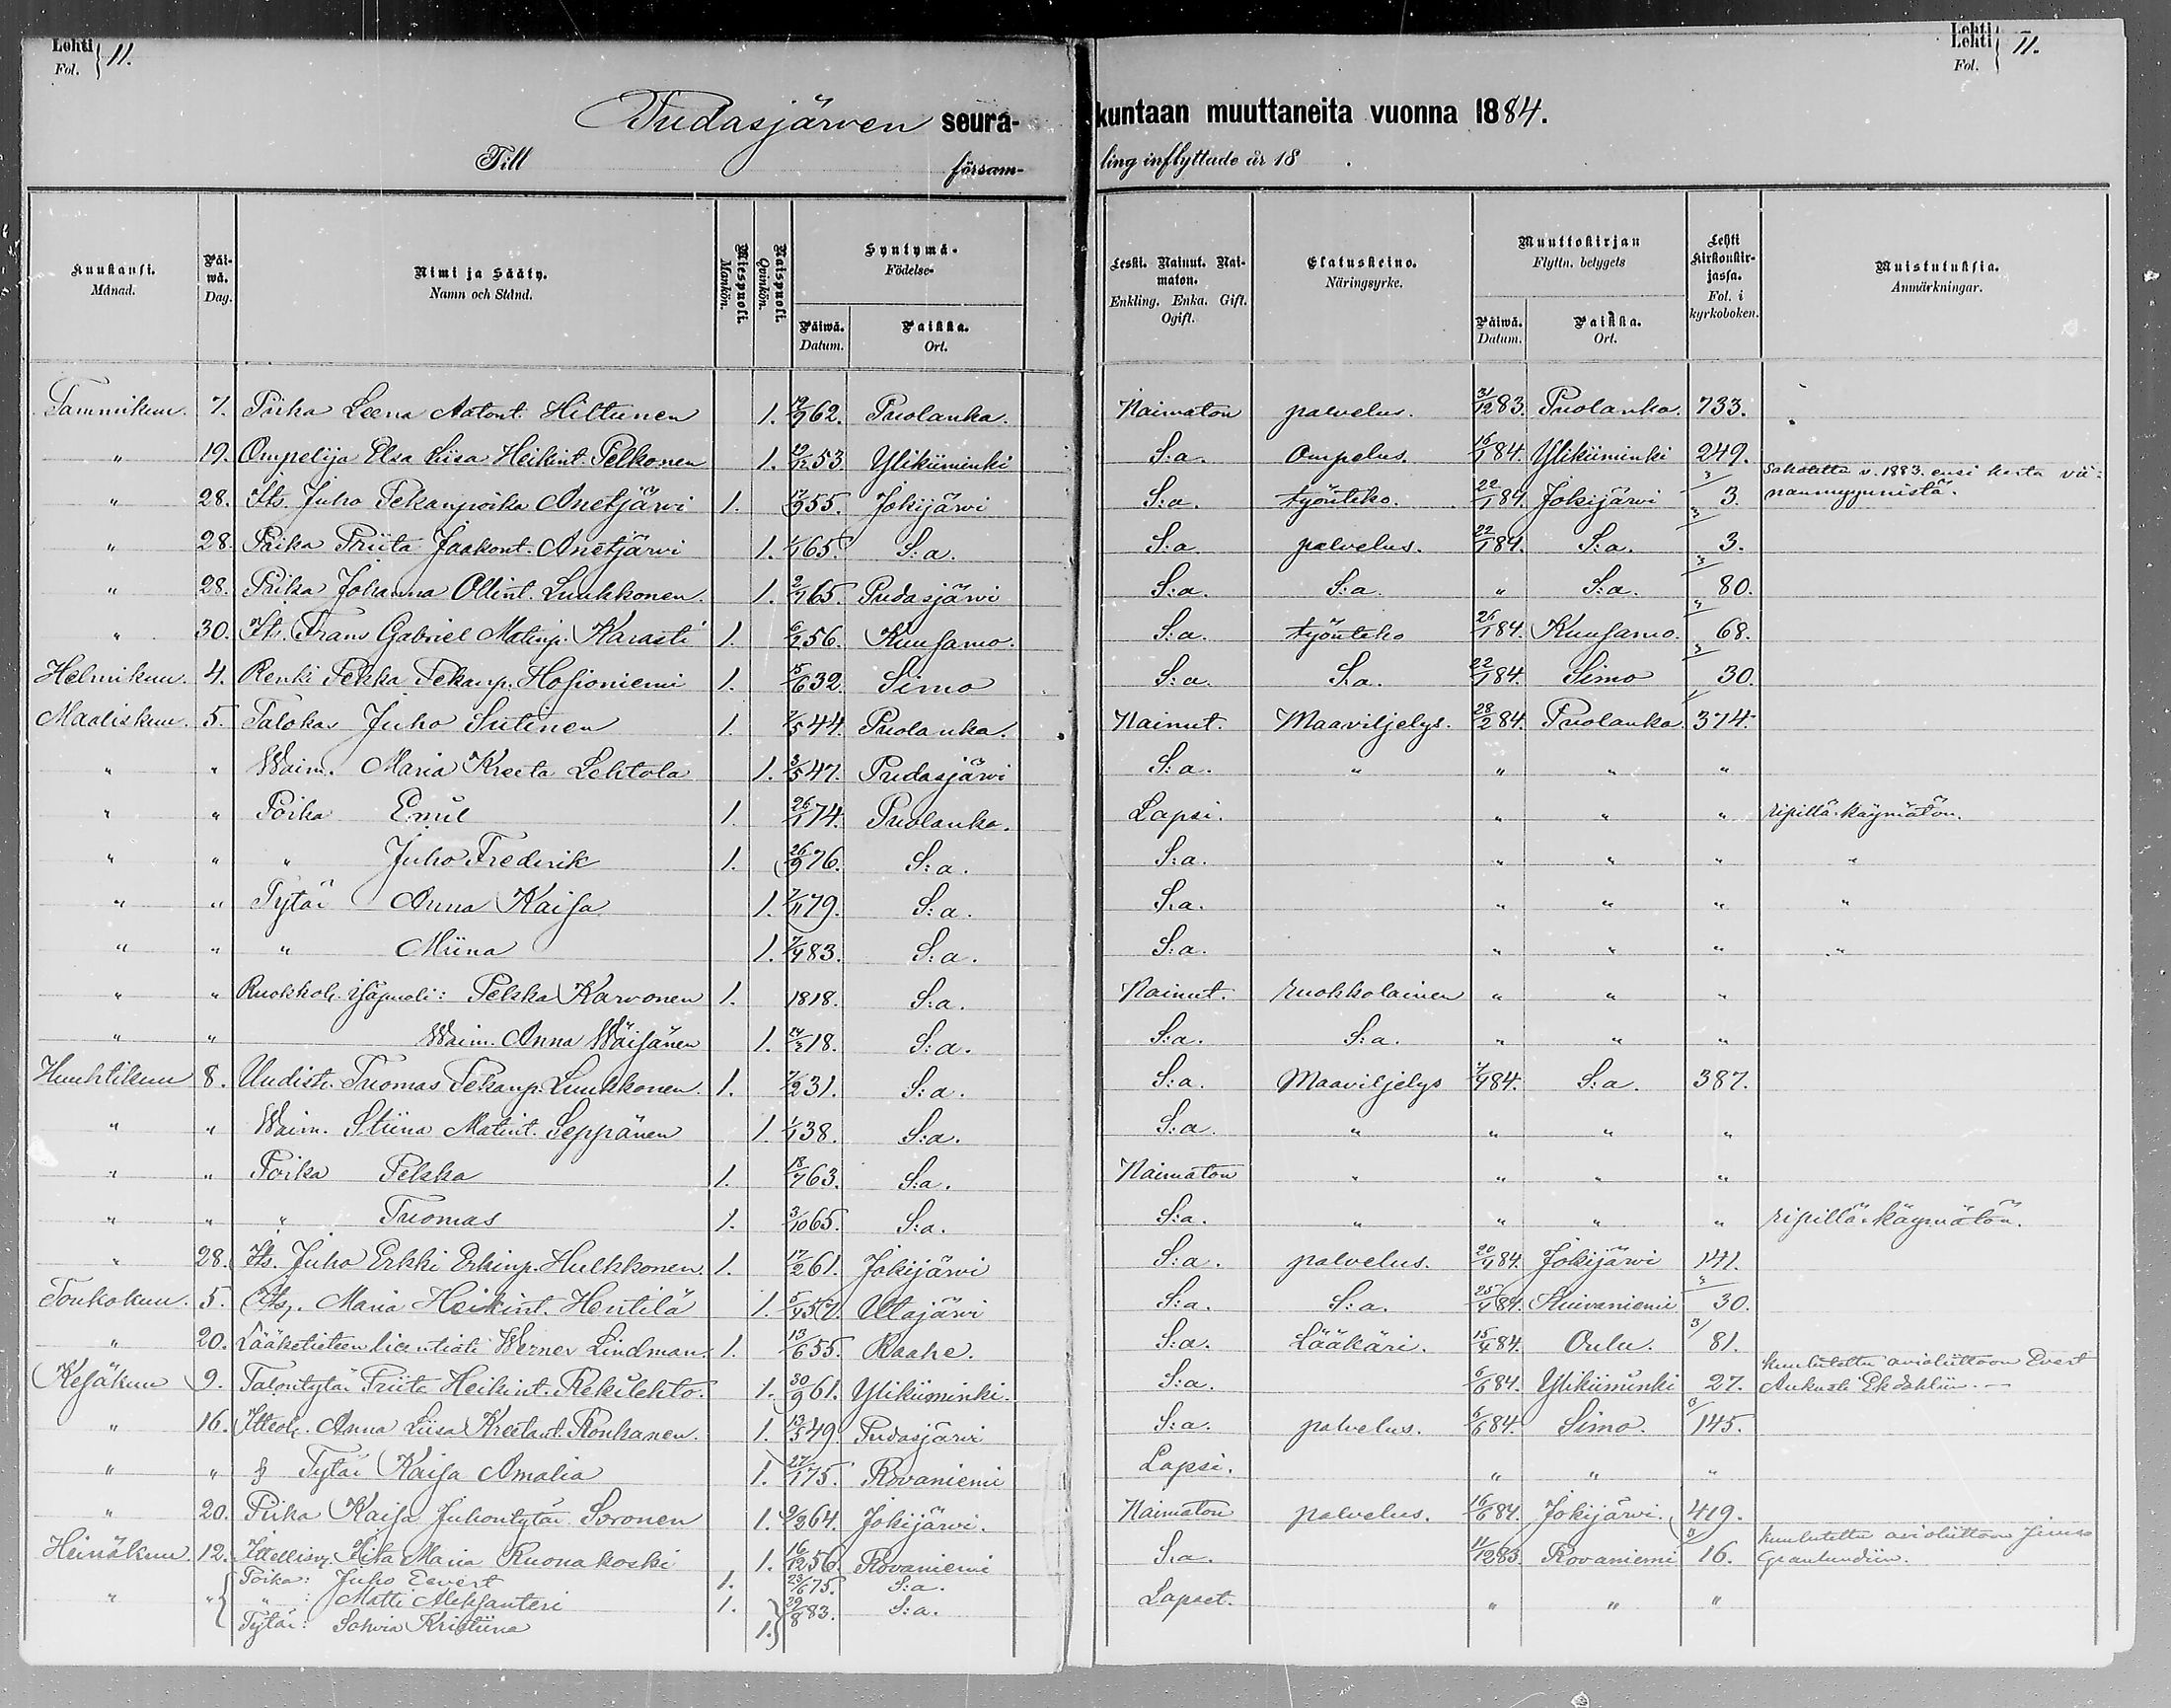 Lehti Fol. 11.
Lehti Lehti Fol. 11.
Pudasjärven seura-kuntaan muuttaneita vuonna 1884.
Till församling inflyttade år 18 .
Kuukausi. Månad. Päiwä. Dag. Nimi ja Sääty. Namn och Stånd. Miespuoli. Mankön. Naispuoli. Qvinkön. Syntymä- Födelse- Päiwä. Datum. Paikka. Ort. Leski. Nainut. Naimaton. Enkling. Enka. Gift. Ogift. Elatuskeino. Näringsyrke. Muuttokirjan Flyttn. betygets Päiwä. Datum. Paikka. Ort. Lehti Kirkonkirjassa. Fol. i kyrkoboken. Muistutuksia. Anmärkningar.
Tammikuu. 7. Piika Leena Aatont. Hiltunen 1. 19/9 62. Puolanka. Naimaton palvelus. 31/12 83. Puolanka. 733.
" 19. Ompelija Elsa Liisa Heikint. Pelkonen 1. 53. Ylikiiminki S:a. Ompelus. 16/1 84. Ylikiiminki 249.
" 28. Its. Juho Pekanpoika Anetjärvi 1. 17/9 55. Jokijärvi S:a. työnteko. 22/1 84. Jokijärvi 3. Sakotettu v. 1883. ensi kerta viinanmyynnistä.
" 28. Piika Priita Jaakont. Anetjärvi 1. 1/1 65. S:a. S:a. palvelus. 22/1 84. S:a. 3.
" 28. Piika Johanna Ollint. Luukkonen. 1. 2/1 65. Pudasjärvi S:a. S:a. " S:a. 80.
" 30. Its. Frans Gabriel Matinp. Karasti 1. 56. Kuusamo. S:a. työnteko 26/1 84. Kuusamo. 68.
Helmikuu. 4. Renki Pekka Pekanp. Hosioniemi 1. 15/6 32. Simo S:a. S:a. 22/1 84. Simo 30.
Maaliskuu. 5. Talokas Juho Sutinen 1. 7/5 44. Puolanka. Nainut. Maaviljelys. 28/2 84. Puolanka. 374.
" " Waim. Maria Kreeta Lehtola 1. 3/5 47. Pudasjärvi S:a. " " " "
" " Poika Emil 1. 26/1 74. Puolanka. Lapsi. " " " ripillä käymätön.
" " " Juho Frederik 1. 26/9 76. S:a. S:a. " " " "
" " Tytär Anna Kaisa 1. 7/11 79. S:a. S:a. " " " "
" " " Miina 1. 83. S:a. S:a. " " " "
" " Ruokkol. isäpuoli: Pekka Karvonen 1. 1818. S:a. Nainut. ruokkolainen " " "
" " Waim. Anna Wäisänen 1. 18. S:a. S:a. S:a. " " "
Huuhtikuu 8. Uudist. Tuomas Pekanp. Luukkonen. 1. 7/2 31. S:a. S:a. Maaviljelys 84. S:a. 387.
" " Waim. Stiina Matint. Seppänen 1. 1/1 38. S:a. S:a. " " " "
" " Poika Pekka 1. 18/7 63. S:a. Naimaton " " " "
" " " Tuomas 1. 3/10 65. S:a. S:a. " " " " ripillä käymätön.
" 28. Its. Juho Erkki Erkinp. Hulkkonen. 1. 17/2 61. Jokijärvi S:a. palvelus. 20/4 84. Jokijärvi 141.
Toukokuu. 5. Its. Maria Heikint. Hentilä 1. 57. Utajärvi S:a. S:a. 25/4 84. Kuivaniemi 30.
" 20. Lääketieteen licentiati Werner Lindman. 1. 13/6 55. Raahe. S:a. Lääkäri. 15/4 84. Oulu. 81.
Kesäkuu 9. Talontytär Priita Heikint. Rekilehto. 1. 30/9 61. Ylikiiminki. S:a. 6/6 84. Ylikiiminki 27. kuulutettu avioliittoon Evert Aukusti Ekdahliin. —
" 16. Itteol. Anna Liisa Kreetant. Ronkanen. 1. 13/5 49. Pudasjärvi S:a. palvelus. 6/6 84. Simo. 145.
" " Tytär Kaisa Amalia 1. 27/1 75. Rovaniemi Lapsi. " " "
" 20. Piika Kaisa Juhontytär Soronen 1. 64. Jokijärvi. Naimaton palvelus. 16/6 84. Jokijärvi. 419.
Heinäkuu. 12. Ittellisn. Maria Ruonakoski 1. 16/12 56. Rovaniemi S:a. 11/12 83 Rovaniemi 16. kuulutettu avioliittoon Granlundiin.
" " Poika: Juho Eevert 1. 23/6 75. S:a. Lapset. " " "
" : Matti Aleksanteri 1. 29/8 83. S:a.
Tytär: Sohvia Kristiina 1.